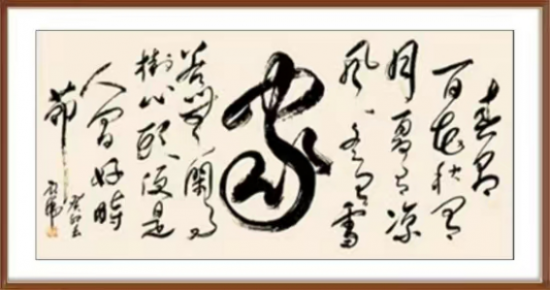 春有
百花秋有
月夏有凉
风冬有雪
若無閑事
挂心头便是
人间好時
节
癸卯